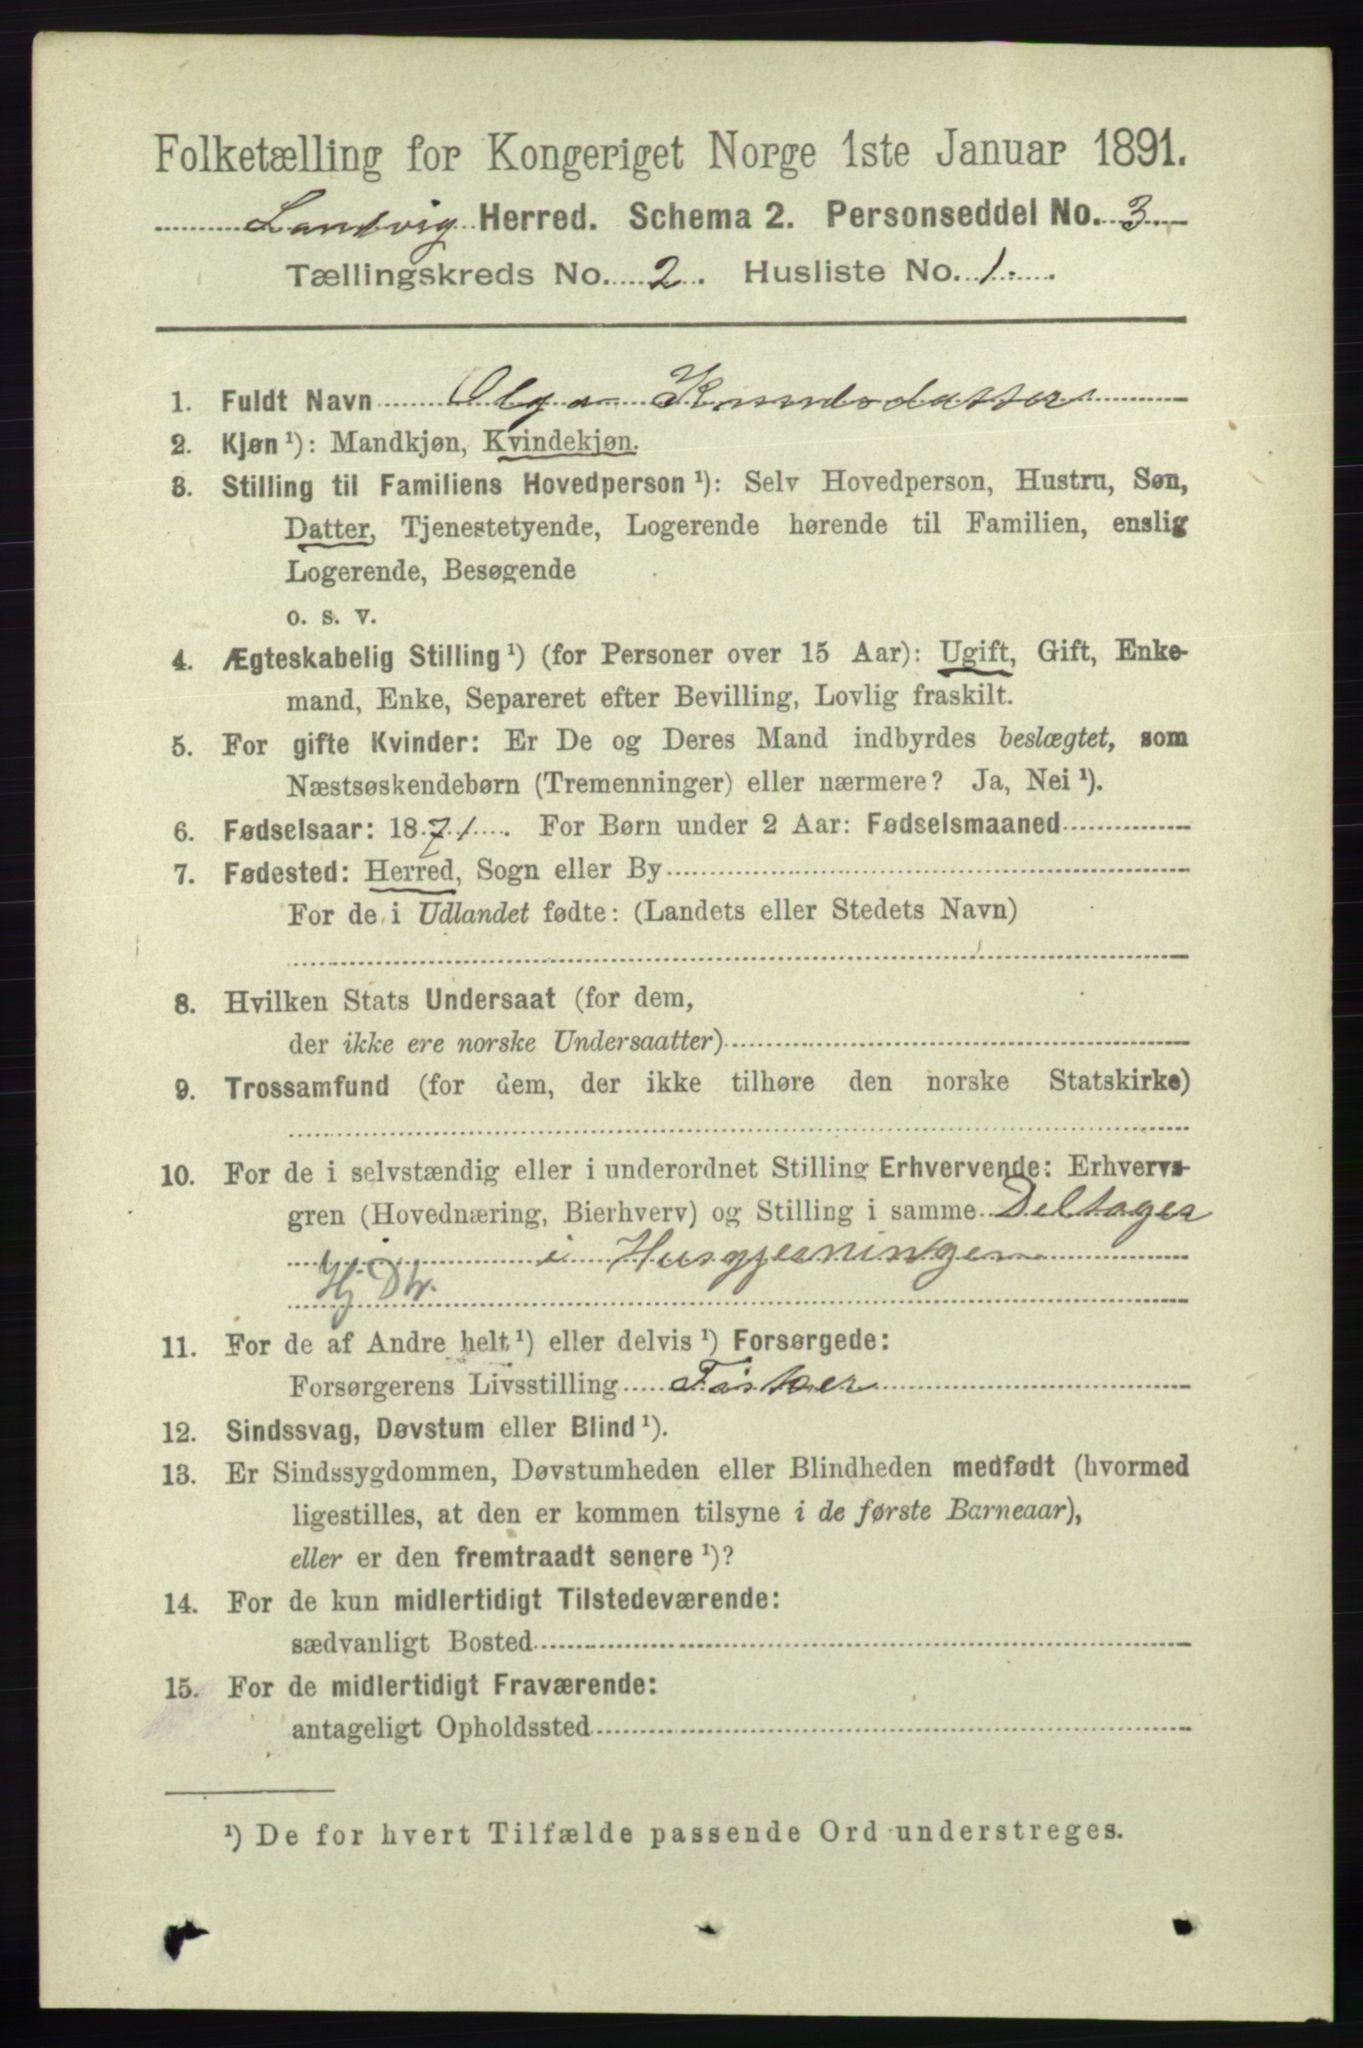 Folketælling for Kongeriget Norge 1ste Januar 1891.
Landvig Herred. Schema 2. Personseddel No. 3
Tællingskreds No. 2. Husliste No. 1.
1. Fuldt Navn Olga Knudsdatter
2. Kjøn ¹): Mandkjøn, Kvindekjøn.
3. Stilling til Familiens Hovedperson ¹): Selv Hovedperson, Hustru, Søn,
Datter, Tjenestetyende, Logerende hørende til Familien, enslig
Logerende, Besøgende
o. s. v.
4. Ægteskabelig Stilling ¹) (for Personer over 15 Aar): Ugift, Gift, Enke-
mand, Enke, Separeret efter Bevilling, Lovlig fraskilt.
5. For gifte Kvinder: Er De og Deres Mand indbyrdes beslægtet, som
Næstsøskendebørn (Tremenninger) eller nærmere? Ja, Nei ¹).
6. Fødselsaar: 1871. For Børn under 2 Aar: Fødselsmaaned
7. Fødested: Herred, Sogn eller By
For de i Udlandet fødte: (Landets eller Stedets Navn)
8. Hvilken Stats Undersaat (for dem,
der ikke ere norske Undersaatter)
9. Trossamfund (for dem, der ikke tilhøre den norske Statskirke)
10. For de i selvstændig eller i underordnet Stilling Erhvervende: Erhvervs-
gren (Hovednæring, Bierhverv) og Stilling i samme Deltager
i Husgjerningen
Hj Dtr.
11. For de af Andre helt ¹) eller delvis ¹) Forsørgede:
Forsørgerens Livsstilling Fisker
12. Sindssvag, Døvstum eller Blind ¹).
13. Er Sindssygdommen, Døvstumheden eller Blindheden medfødt (hvormed
ligestilles, at den er kommen tilsyne i de første Barneaar),
eller er den fremtraadt senere ¹)?
14. For de kun midlertidigt Tilstedeværende:
sædvanligt Bosted
15. For de midlertidigt Fraværende:
antageligt Opholdssted
¹) De for hvert Tilfælde passende Ord understreges.